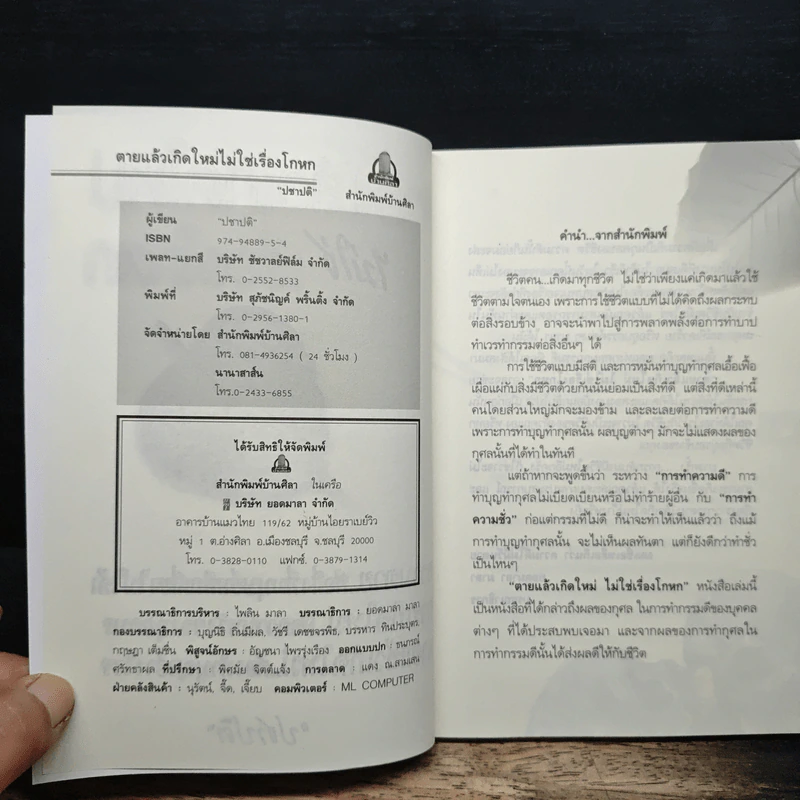 ตายแล้วเกิดใหม่ไม่ใช่เรื่องโกหก
"ปชาปติ"
บ้านศิลา
สำนักพิมพ์บ้านศิลา
ผู้เขียน "ปชาปติ"
ISBN 974-94889-5-4
เพลท-แยกสี บริษัท ชัชวาลย์ฟิล์ม จำกัด
โทร. 0-2552-8533
พิมพ์ที่ บริษัท สุภัชนิญค์ พริ้นติ้ง จำกัด
โทร. 0-2956-1380-1
จัดจำหน่ายโดย สำนักพิมพ์บ้านศิลา
โทร. 081-4936254 ( 24 ชั่วโมง )
นานาสาส์น
โทร.0-2433-6855
ได้รับสิทธิให้จัดพิมพ์
สำนักพิมพ์บ้านศิลา ในเครือ
บริษัท ยอดมาลา จำกัด
อาคารบ้านแมวไทย 119/62 หมู่บ้านไอยราเบย์วิว
หมู่ 1 ต.อ่างศิลา อ.เมืองชลบุรี จ.ชลบุรี 20000
โทร. 0-3828-0110 แฟกซ์. 0-3879-1314
บรรณาธิการบริหาร : ไพลิน มาลา บรรณาธิการ : ยอดมาลา มาลา
กองบรรณาธิการ : บุญนิธิ ถิ่นมีผล, วัชรี เดชขจรพิช, บรรหาร ทินประบุตร,
กฤษฎา เต็มชื่น พิสูจน์อักษร : อัญชนา ไพรรุ่งเรือง ออกแบบปก : ชนภรณ์
ศรัทธาผล ที่ปรึกษา : พิศมัย จิตต์แจ้ง การตลาด : แดง ณ.สามเสน
ฝ่ายคลังสินค้า : นุรัตน์, จี๊ด, เจี๊ยบ คอมพิวเตอร์ : ML COMPUTER
คำนำ...จากสำนักพิมพ์
ชีวิตคน...เกิดมาทุกชีวิต ไม่ใช่ว่าเพียงแค่เกิดมาแล้วใช้
ชีวิตตามใจตนเอง เพราะการใช้ชีวิตแบบที่ไม่ได้คิดถึงผลกระทบ
ต่อสิ่งรอบข้าง อาจจะนำพาไปสู่การพลาดพลั้งต่อการทำบาป
ทำเวรทำกรรมต่อสิ่งอื่นๆ ได้
การใช้ชีวิตแบบมีสติ และการหมั่นทำบุญทำกุศลเอื้อเฟื้อ
เผื่อแผ่กับสิ่งมีชีวิตด้วยกันนั้นย่อมเป็นสิ่งที่ดี แต่สิ่งที่ดีเหล่านี้
คนโดยส่วนใหญ่มักจะมองข้าม และละเลยต่อการทำความดี
เพราะการทำบุญทำกุศลนั้น ผลบุญต่างๆ มักจะไม่แสดงผลของ
กุศลนั้นที่ได้ทำในทันที
แต่ถ้าหากจะพูดขึ้นว่า ระหว่าง "การทำความดี" การ
ทำบุญทำกุศลไม่เบียดเบียนหรือไม่ทำร้ายผู้อื่น กับ "การทำ
ความชั่ว" ก่อแต่กรรมที่ไม่ดี ก็น่าจะทำให้เห็นแล้วว่า ถึงแม้
การทำบุญทำกุศลนั้น จะไม่เห็นผลทันตา แต่ก็ยังดีกว่าทำชั่ว
เป็นไหนๆ
"ตายแล้วเกิดใหม่ ไม่ใช่เรื่องโกหก" หนังสือเล่มนี้
เป็นหนังสือที่ได้กล่าวถึงผลของกุศล ในการทำกรรมดีของบุคคล
ต่างๆ ที่ได้ประสบพบเจอมา และจากผลของการทำกุศลใน
การทำกรรมดีนั้นได้ส่งผลดีให้กับชีวิต
"ปชาปติ"